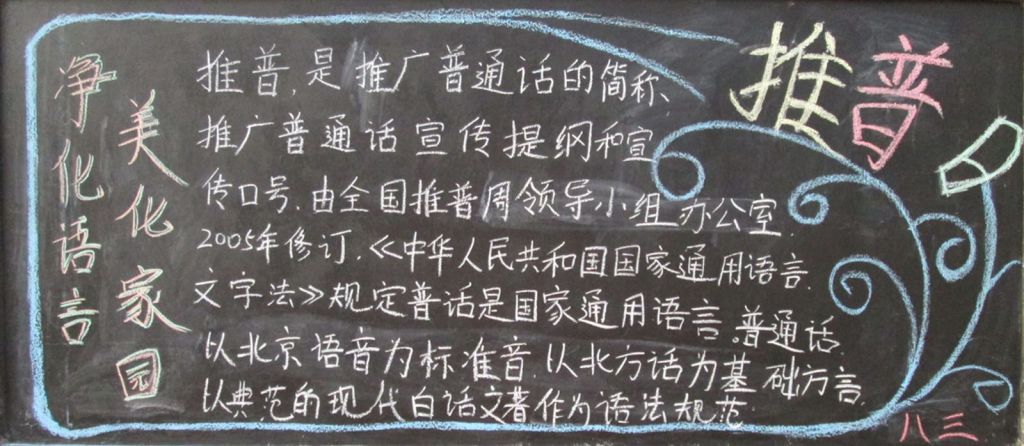 推普
净化语言
美化家园
推普,是推广普通话的简称、
推广普通话宣传提纲和宣
传口号,由全国推普周领导小组办公室
2005年修订,《中华人民共和国国家通用语言
文字法》规定普话是国家通用语言。普通话
以北京语音为标准音,以北方话为基础方言,
以典范的现代白话文著作为语法规范
八三